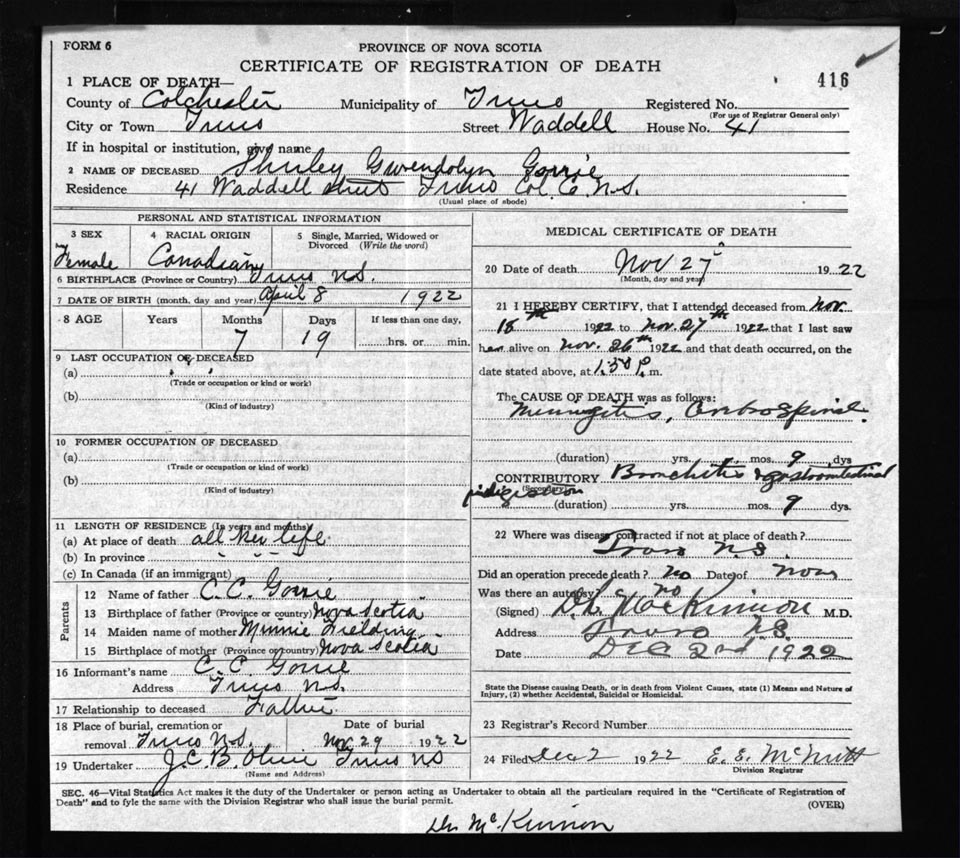 FORM 6
PROVINCE OF NOVA SCOTIA
CERTIFICATE OF REGISTRATION OF DEATH
416
1 PLACE OF DEATH—
County of Colchester Municipality of Truro Registered No.
(For use of Registrar General only)
City or Town Truro Street Waddell House No. 41
If in hospital or institution, give name
2 NAME OF DECEASED Shirley Gwendolyn Gorrie
Residence 41 Waddell street Truro Col. Co. N.S.
(Usual place of abode)
PERSONAL AND STATISTICAL INFORMATION
3 SEX 4 RACIAL ORIGIN 5 Single, Married, Widowed or Divorced (Write the word)
Female Canadian
6 BIRTHPLACE (Province or Country) Truro N.S.
7 DATE OF BIRTH (month, day and year) April 8 1922
8 AGE Years Months Days If less than one day,
7 19 hrs. or min.
9 LAST OCCUPATION OF DECEASED
(a)
(Trade or occupation or kind or work)
(b)
(Kind of industry)
10 FORMER OCCUPATION OF DECEASED
(a)
(Trade or occupation or kind of work)
(b)
(Kind of industry)
11 LENGTH OF RESIDENCE (In years and months)
(a) At place of death all her life
(b) In province " " "
(c) In Canada (if an immigrant)
Parents
12 Name of father C. C. Gorrie
13 Birthplace of father (Province or country) Nova Scotia
14 Maiden name of mother Minnie Fielding
15 Birthplace of mother (Province or country) Nova Scotia
16 Informant's name C. C. Gorrie
Address Truro N.S.
17 Relationship to deceased Father
18 Place of burial, cremation or removal Truro N.S. Date of burial Nov 29 1922
19 Undertaker J. C. B. Olive Truro NS
(Name and Address)
MEDICAL CERTIFICATE OF DEATH
20 Date of death Nov 27 1922
(Month, day and year)
21 I HEREBY CERTIFY, that I attended deceased from Nov.
18th 1922 to Nov. 27th 1922 that I last saw
her alive on Nov. 26th 1922 and that death occurred, on the
date stated above, at 1.30 P.m.
The CAUSE OF DEATH was as follows:
Meningitis, Cerebrospinal
(duration) yrs. mos. 9 dys
CONTRIBUTORY Bronchitis & gastrointestinal
(Secondary) indigestion
(duration) yrs. mos. 9 dys.
22 Where was disease contracted if not at place of death?
Truro N.S.
Did an operation precede death? No Date of
Was there an autopsy? no
(Signed) MacKinnon M.D.
Address Truro N.S.
Date Dec 2nd 1922
State the Disease causing Death, or in death from Violent Causes, state (1) Means and Nature of
Injury, (2) whether Accidental, Suicidal or Homicidal.
23 Registrar's Record Number
24 Filed Dec 2 1922 E. E. McNutt
Division Registrar
SEC. 46—Vital Statistics Act makes it the duty of the Undertaker or person acting as Undertaker to obtain all the particulars required in the "Certificate of Registration of
Death" and to fyle the same with the Division Registrar who shall issue the burial permit.
(OVER)
Dr McKinnon